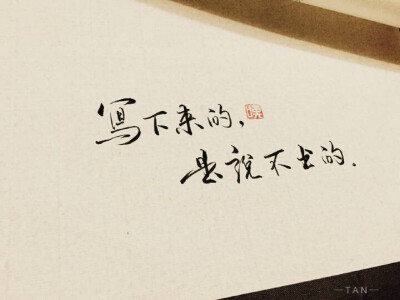 寫下来的，
是說不出的．
—TAN—